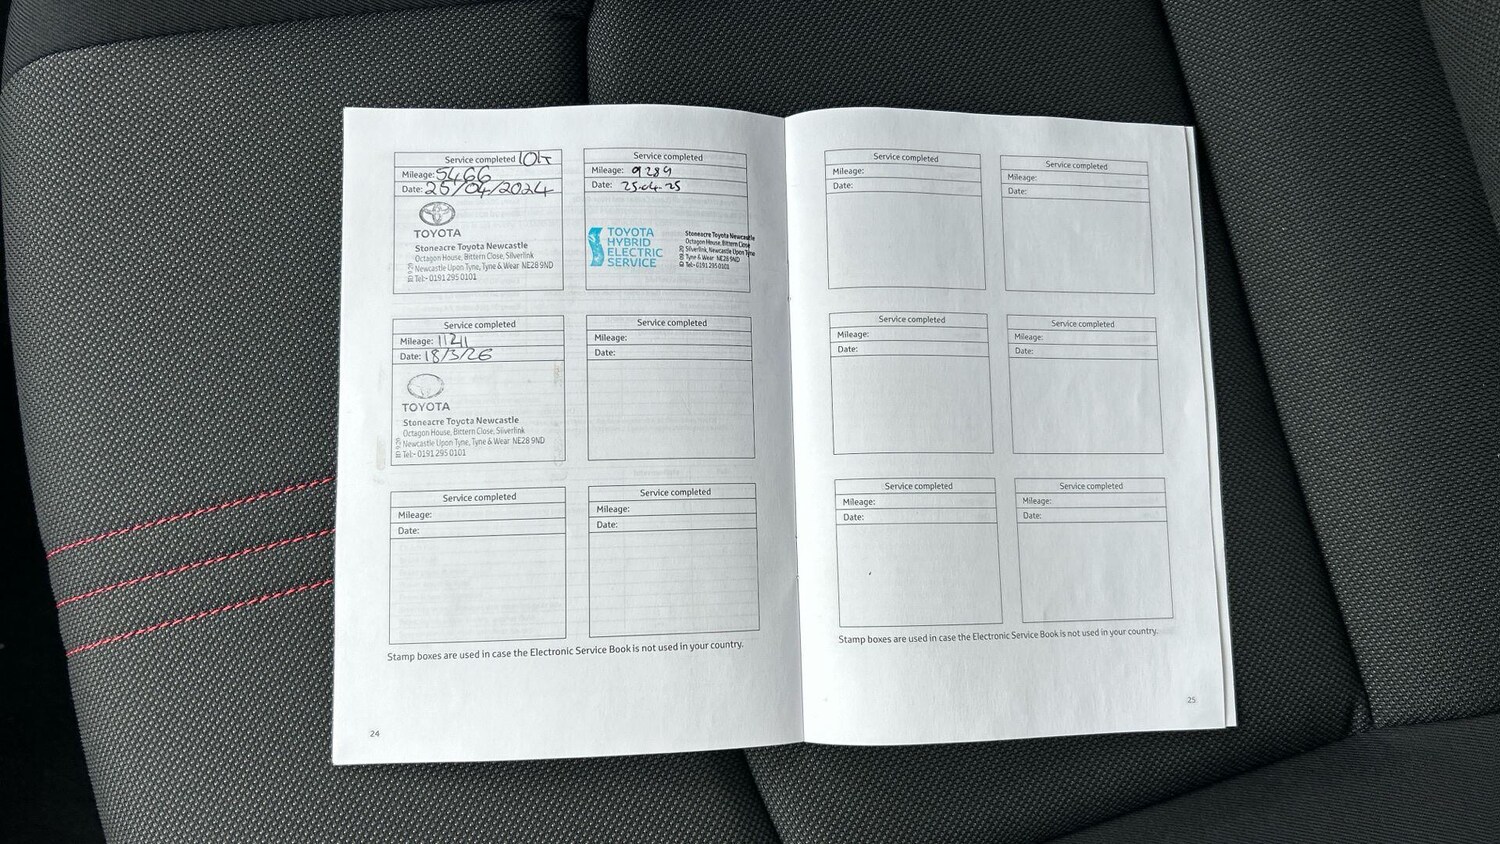 Service completed
Mileage: 5466
Date: 25/04/2024
TOYOTA
Stoneacre Toyota Newcastle
Octagon House, Bittern Close, Silverlink
Newcastle Upon Tyne, Tyne & Wear NE28 9ND
Tel:- 0191 295 0101
Service completed
Mileage: 9289
Date: 25-04-25
TOYOTA
HYBRID
ELECTRIC
SERVICE
Stoneacre Toyota Newcastle
Octagon House, Bittern Close
Silverlink, Newcastle Upon Tyne
Tyne & Wear NE28 9ND
Tel:- 0191 295 0101
Service completed
Mileage:
Date: 18/3/26
TOYOTA
Stoneacre Toyota Newcastle
Octagon House, Bittern Close, Silverlink
Newcastle Upon Tyne, Tyne & Wear NE28 9ND
Tel:- 0191 295 0101
Service completed
Mileage:
Date:
Service completed
Mileage:
Date:
Service completed
Mileage:
Date:
Stamp boxes are used in case the Electronic Service Book is not used in your country.
24
Service completed
Mileage:
Date:
Service completed
Mileage:
Date:
Service completed
Mileage:
Date:
Service completed
Mileage:
Date:
Service completed
Mileage:
Date:
Service completed
Mileage:
Date:
Stamp boxes are used in case the Electronic Service Book is not used in your country.
25